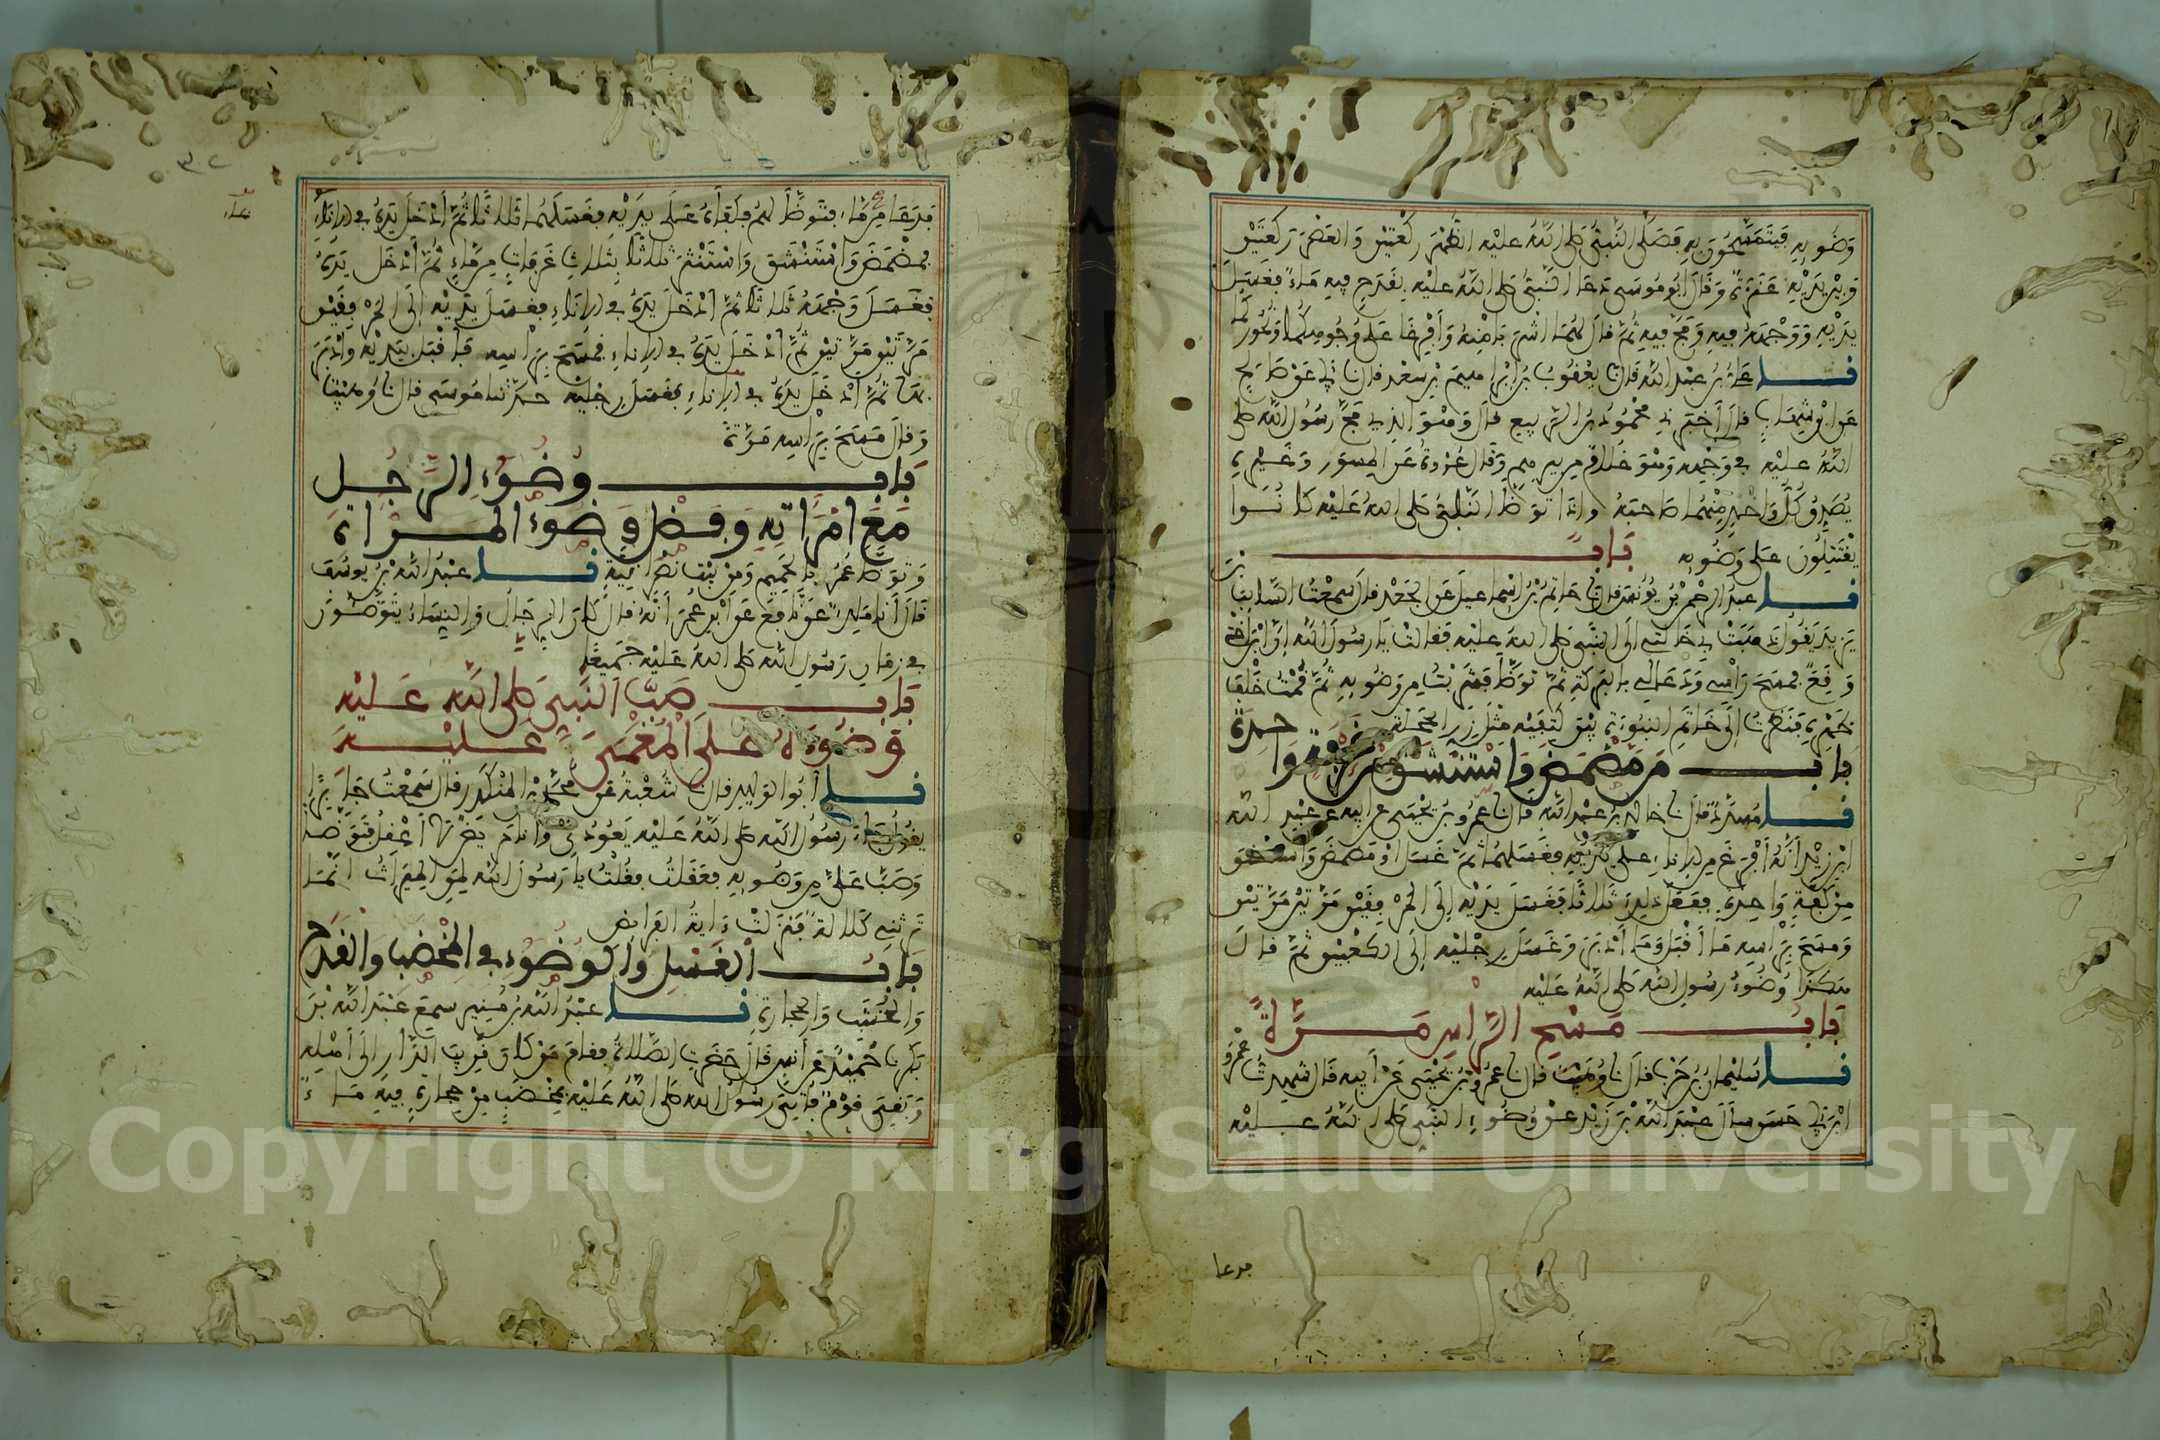 وَضُوبِهِ فَيَتَمَسَّحُونَ بِهِ فَصَلَّى النَّبِيُّ صَلَّى اللَّهُ عَلَيْهِ الظُّهْرَ رَكْعَتَيْنِ وَالْعَصْرَ رَكْعَتَيْنِ
وَبَيْنَ يَدَيْهِ عَنَزَةٌ وَقَالَ أَبُو مُوسَى دَعَا النَّبِيُّ صَلَّى اللَّهُ عَلَيْهِ بِقَدَحٍ فِيهِ مَاءٌ فَغَسَلَ
يَدَيْهِ وَوَجْهَهُ فِيهِ وَمَجَّ فِيهِ ثُمَّ قَالَ لَهُمَا اشْرَبَا مِنْهُ وَأَفْرِغَا عَلَى وُجُوهِكُمَا وَنُحُورِكُمَا
نا عَلِيُّ بْنُ عَبْدِ اللَّهِ قَالَ نا يَعْقُوبُ بْنُ إِبْرَاهِيمَ بْنِ سَعْدٍ قَالَ نا أَبِي عَنْ صَالِحٍ
عَنِ ابْنِ شِهَابٍ قَالَ أَخْبَرَنِي مَحْمُودُ بْنُ الرَّبِيعِ قَالَ وَهْوَ الَّذِي مَجَّ رَسُولُ اللَّهِ صَلَّى
اللَّهُ عَلَيْهِ فِي وَجْهِهِ وَهْوَ غُلَامٌ مِنْ بِيرِهِمْ وَقَالَ عُرْوَةُ عَنِ الْمِسْوَرِ وَغَيْرِهِ
يُصَدِّقُ كُلُّ وَاحِدٍ مِنْهُمَا صَاحِبَهُ وَإِذَا تَوَضَّأَ النَّبِيُّ صَلَّى اللَّهُ عَلَيْهِ كَانُوا
يَقْتَتِلُونَ عَلَى وَضُوئِهِ بَابٌ
نا عَبْدُ الرَّحْمَنِ بْنُ يُونُسَ قَالَ نا حَاتِمُ بْنُ إِسْمَاعِيلَ عَنِ الْجَعْدِ قَالَ سَمِعْتُ السَّائِبَ بْنَ
يَزِيدَ يَقُولُ ذَهَبَتْ بِي خَالَتِي إِلَى النَّبِيِّ صَلَّى اللَّهُ عَلَيْهِ فَقَالَتْ يَا رَسُولَ اللَّهِ إِنَّ ابْنَ أُخْتِي
وَقِعٌ فَمَسَحَ رَأْسِي وَدَعَا لِي بِالْبَرَكَةِ ثُمَّ تَوَضَّأَ فَشَرِبْتُ مِنْ وَضُوئِهِ ثُمَّ قُمْتُ خَلْفَ
ظَهْرِهِ فَنَظَرْتُ إِلَى خَاتَمِ النُّبُوَّةِ بَيْنَ كَتِفَيْهِ مِثْلَ زِرِّ الْحَجَلَةِ
بَابُ مَنْ مَضْمَضَ وَاسْتَنْشَقَ مِنْ غَرْفَةٍ وَاحِدَةٍ
نا مُسَدَّدٌ قَالَ نا خَالِدُ بْنُ عَبْدِ اللَّهِ قَالَ نا عَمْرُو بْنُ يَحْيَى عَنْ أَبِيهِ عَنْ عَبْدِ اللَّهِ
ابْنِ زَيْدٍ أَنَّهُ أَفْرَغَ مِنَ الْإِنَاءِ عَلَى يَدَيْهِ فَغَسَلَهُمَا ثُمَّ غَسَلَ أَوْ مَضْمَضَ وَاسْتَنْشَقَ
مِنْ كَفَّةٍ وَاحِدَةٍ فَفَعَلَ ذَلِكَ ثَلَاثًا فَغَسَلَ يَدَيْهِ إِلَى الْمِرْفَقَيْنِ مَرَّتَيْنِ مَرَّتَيْنِ
وَمَسَحَ بِرَأْسِهِ مَا أَقْبَلَ وَمَا أَدْبَرَ وَغَسَلَ رِجْلَيْهِ إِلَى الْكَعْبَيْنِ ثُمَّ قَالَ
هَكَذَا وُضُوءُ رَسُولِ اللَّهِ صَلَّى اللَّهُ عَلَيْهِ
بَابُ مَسْحِ الرَّأْسِ مَرَّةً
نا سُلَيْمَانُ بْنُ حَرْبٍ قَالَ نا وُهَيْبٌ قَالَ نا عَمْرُو بْنُ يَحْيَى عَنْ أَبِيهِ قَالَ شَهِدْتُ عَمْرَو
ابْنَ أَبِي حَسَنٍ سَأَلَ عَبْدَ اللَّهِ بْنَ زَيْدٍ عَنْ وُضُوءِ النَّبِيِّ صَلَّى اللَّهُ عَلَيْهِ
فدعا
فَدَعَا بِتَوْرٍ مِنْ مَاءٍ فَتَوَضَّأَ لَهُمْ فَكَفَأَهُ عَلَى يَدَيْهِ فَغَسَلَهُمَا ثَلَاثًا ثُمَّ أَدْخَلَ يَدَهُ فِي الْإِنَاءِ
فَمَضْمَضَ وَاسْتَنْشَقَ وَاسْتَنْثَرَ ثَلَاثًا بِثَلَاثِ غَرَفَاتٍ مِنْ مَاءٍ ثُمَّ أَدْخَلَ يَدَهُ
فَغَسَلَ وَجْهَهُ ثَلَاثًا ثُمَّ أَدْخَلَ يَدَهُ فِي الْإِنَاءِ فَغَسَلَ يَدَيْهِ إِلَى الْمِرْفَقَيْنِ
مَرَّتَيْنِ مَرَّتَيْنِ ثُمَّ أَدْخَلَ يَدَهُ فِي الْإِنَاءِ فَمَسَحَ بِرَأْسِهِ فَأَقْبَلَ بِيَدَيْهِ وَأَدْبَرَ
بِهِمَا ثُمَّ أَدْخَلَ يَدَهُ فِي الْإِنَاءِ فَغَسَلَ رِجْلَيْهِ حَدَّثَنَا مُوسَى قَالَ نا وُهَيْبٌ
وَقَالَ مَسَحَ بِرَأْسِهِ مَرَّةً
بَابُ وُضُوءِ الرَّجُلِ
مَعَ امْرَأَتِهِ وَفَضْلِ وَضُوءِ الْمَرْأَةِ
وَتَوَضَّأَ عُمَرُ بِالْحَمِيمِ وَمِنْ بَيْتِ نَصْرَانِيَّةٍ نا عَبْدُ اللَّهِ بْنُ يُوسُفَ
قَالَ أَنا مَالِكٌ عَنْ نَافِعٍ عَنِ ابْنِ عُمَرَ أَنَّهُ قَالَ كَانَ الرِّجَالُ وَالنِّسَاءُ يَتَوَضَّئُونَ
فِي زَمَانِ رَسُولِ اللَّهِ صَلَّى اللَّهُ عَلَيْهِ جَمِيعًا
بَابُ صَبِّ النَّبِيِّ صَلَّى اللَّهُ عَلَيْهِ
وَضُوءَهُ عَلَى الْمُغْمَى عَلَيْهِ
نا أَبُو الْوَلِيدِ قَالَ نا شُعْبَةُ عَنْ مُحَمَّدِ بْنِ الْمُنْكَدِرِ قَالَ سَمِعْتُ جَابِرًا
يَقُولُ جَاءَ رَسُولُ اللَّهِ صَلَّى اللَّهُ عَلَيْهِ يَعُودُنِي وَأَنَا مَرِيضٌ لَا أَعْقِلُ فَتَوَضَّأَ
وَصَبَّ عَلَيَّ مِنْ وَضُوئِهِ فَعَقَلْتُ فَقُلْتُ يَا رَسُولَ اللَّهِ لِمَنِ الْمِيرَاثُ إِنَّمَا
يَرِثُنِي كَلَالَةٌ فَنَزَلَتْ ءَايَةُ الْفَرَائِضِ
بَابُ الْغُسْلِ وَالْوُضُوءِ فِي الْمِخْضَبِ وَالْقَدَحِ
وَالْخَشَبِ وَالْحِجَارَةِ نا عَبْدُ اللَّهِ بْنُ مُنِيرٍ سَمِعَ عَبْدَ اللَّهِ بْنَ
بَكْرٍ نا حُمَيْدٌ عَنْ أَنَسٍ قَالَ حَضَرَتِ الصَّلَاةُ فَقَامَ مَنْ كَانَ قَرِيبَ الدَّارِ إِلَى أَهْلِهِ
وَبَقِيَ قَوْمٌ فَأُتِيَ رَسُولُ اللَّهِ صَلَّى اللَّهُ عَلَيْهِ بِمِخْضَبٍ مِنْ حِجَارَةٍ فِيهِ مَاءٌ
Copyright © King Saud University